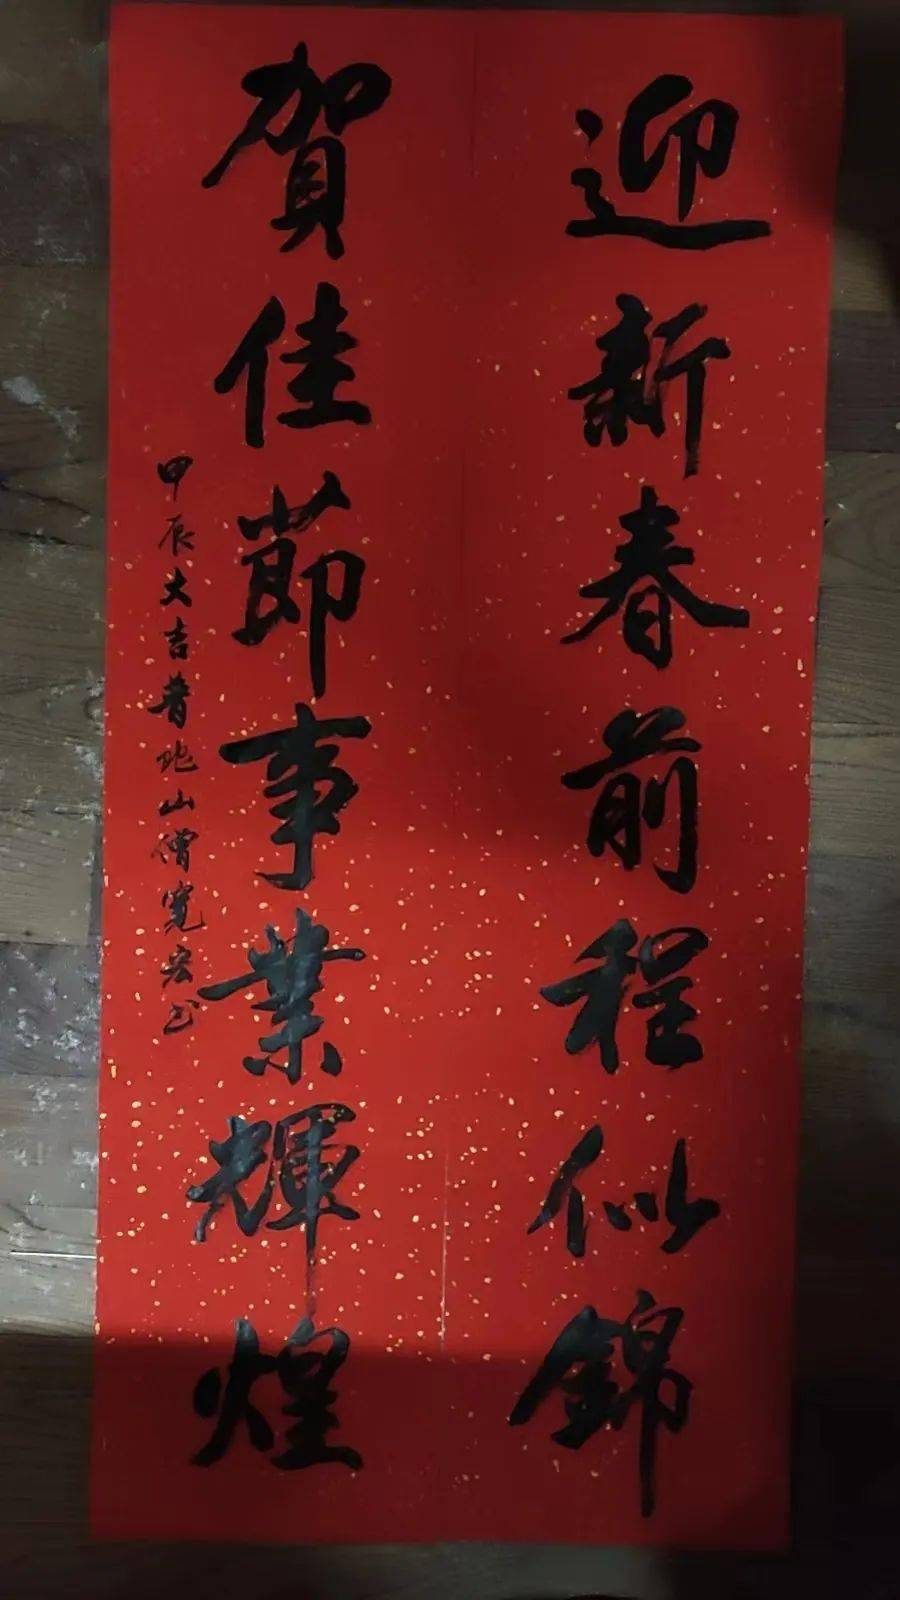 迎新春前程似錦
賀佳節事業輝煌
甲辰大吉普陀山僧寬宏书